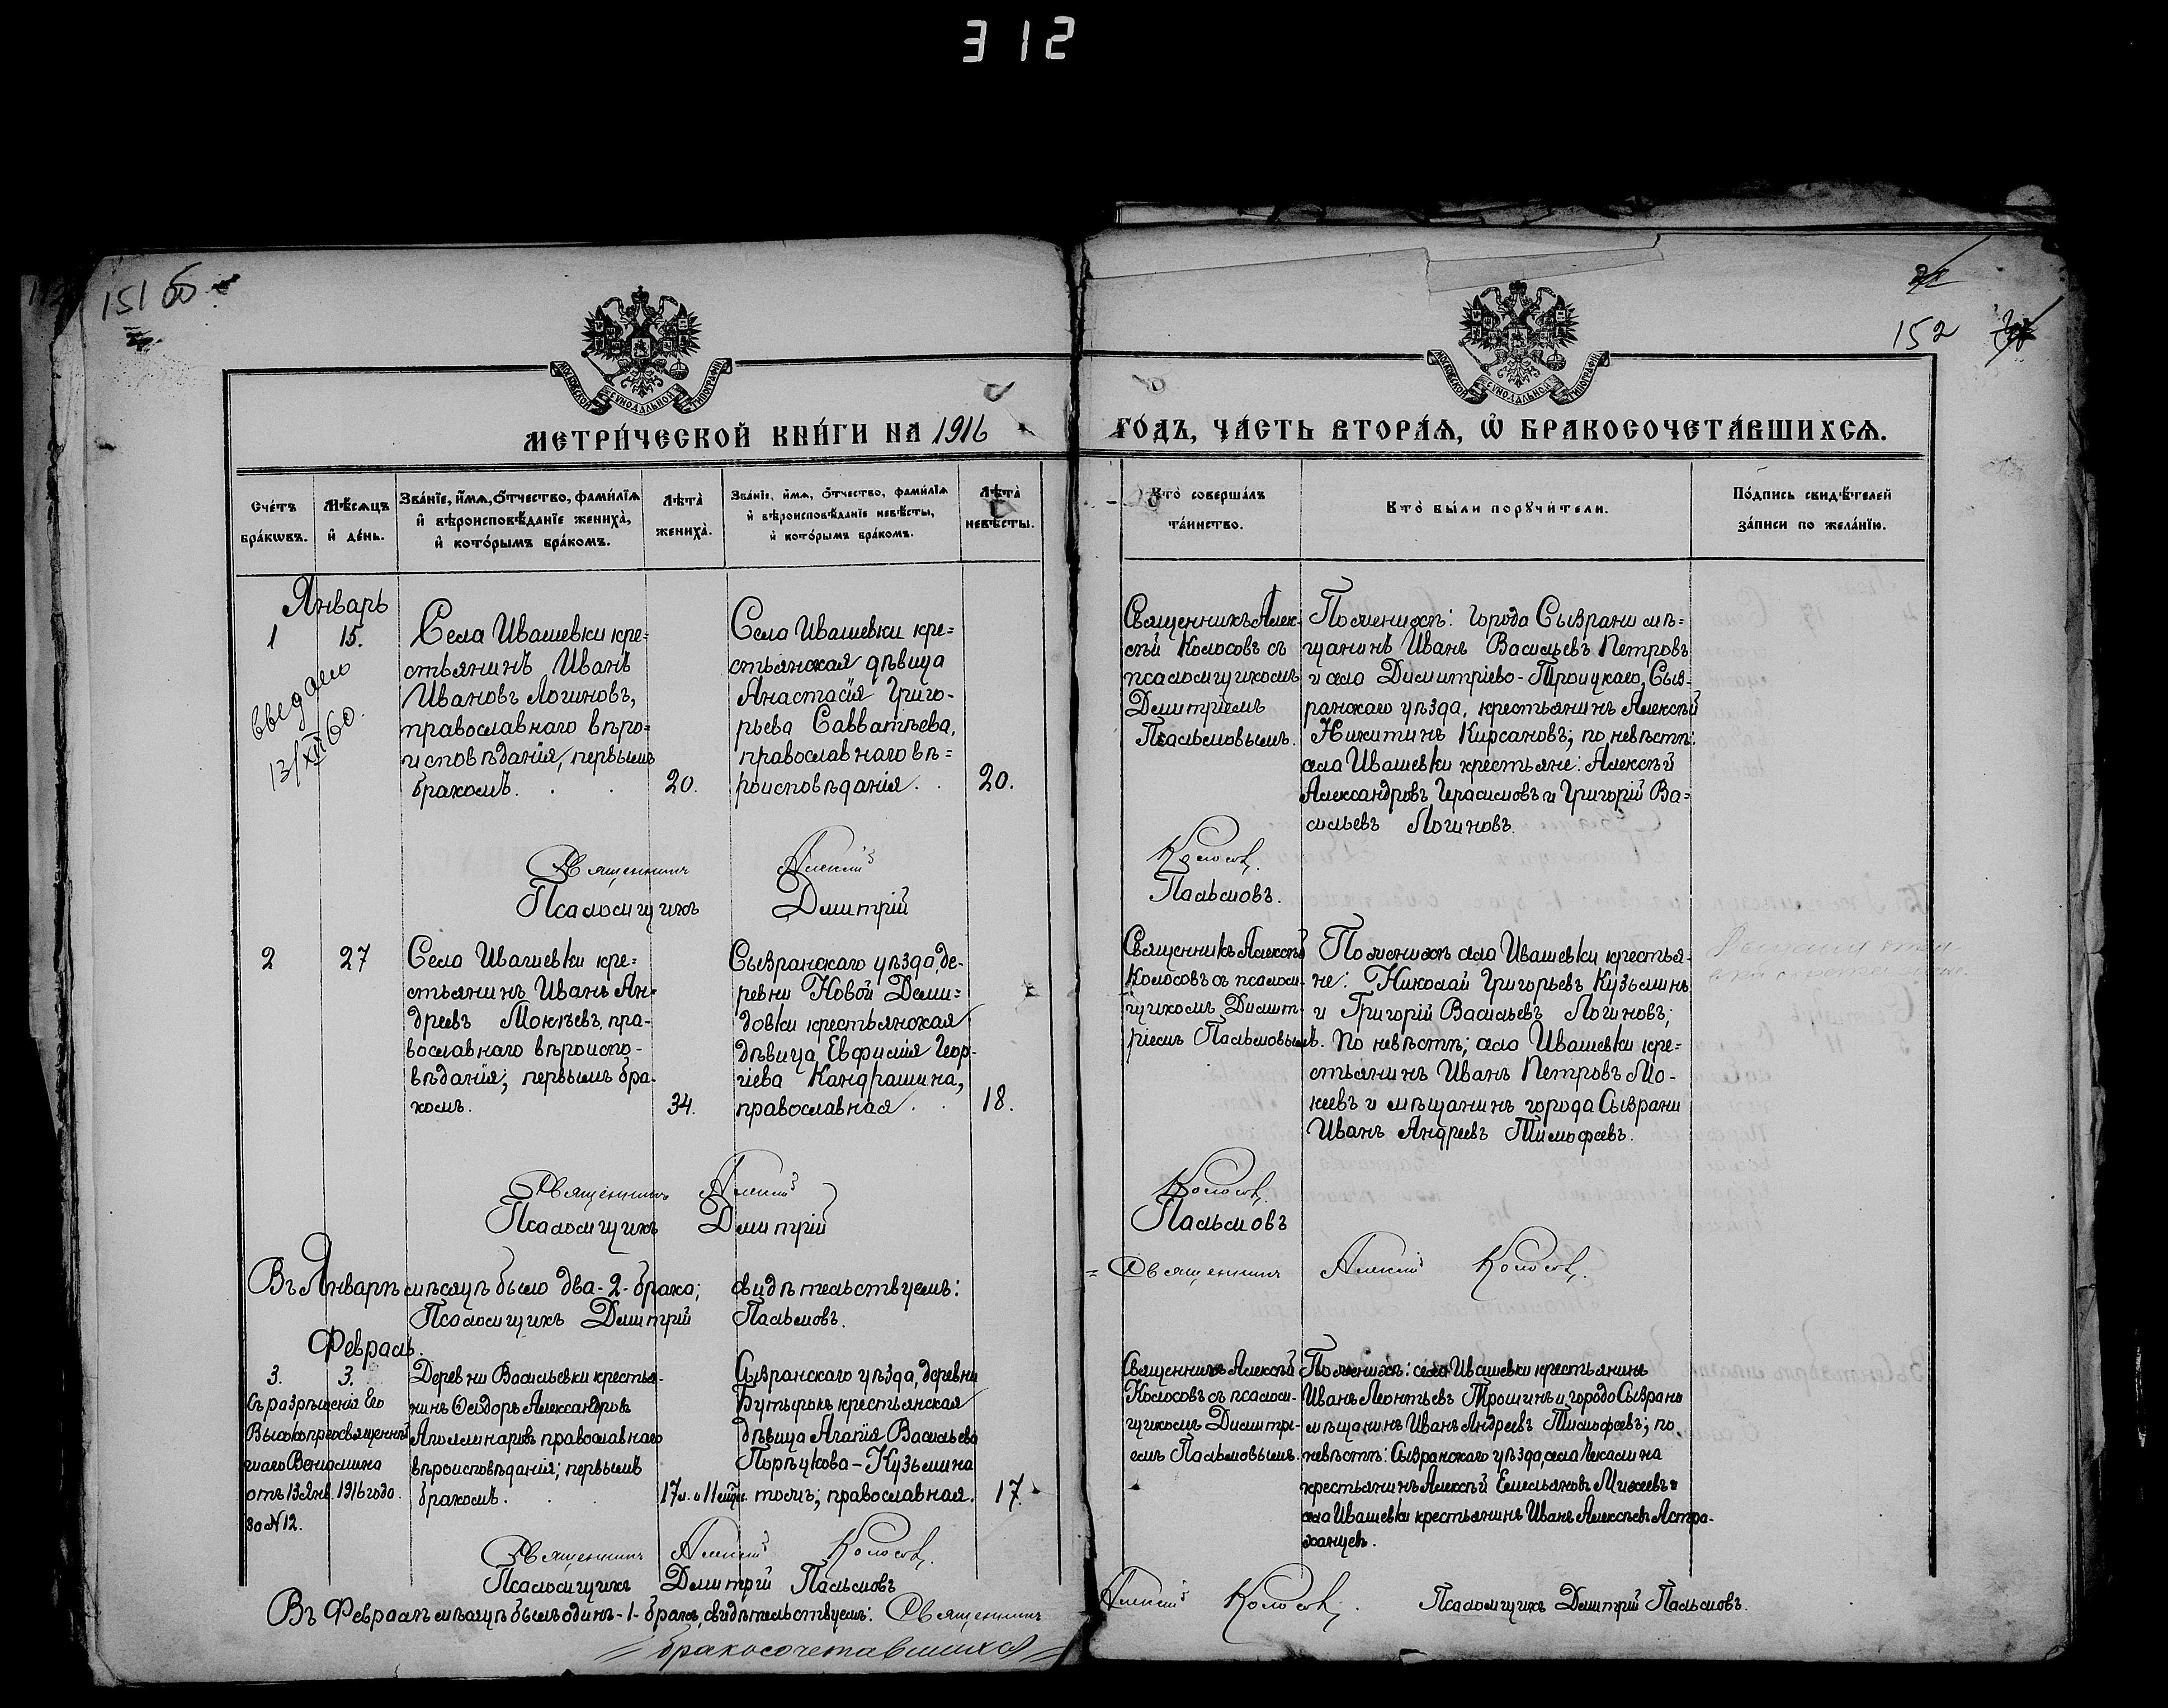 312
151 об
152
МОСКОВСКОЙ СѴНОДАЛЬНОЙ ТИПОГРАФІИ
МОСКОВСКОЙ СѴНОДАЛЬНОЙ ТИПОГРАФІИ
МЕТРИ́ЧЕСКОЙ КНИ́ГИ НА 1916
ГО́ДЪ, ЧА́СТЬ ВТОРА́Ѧ, Ѽ БРАКОСОЧЕТА́ВШИХСѦ.
Сче́тъ
бра́кѡвъ.
Мѣ́сѧцъ
и҆ де́нь.
Зва́нїе, и҆́мѧ, ѻ҆́тчество, фами́лїѧ
и҆ вѣроисповѣ́данїе жениха̀,
и҆ кото́рымъ бра́комъ.
Лѣта̀
жениха̀.
Зва́нїе, и҆́мѧ, ѻ҆́тчество, фами́лїѧ
и҆ вѣроисповѣ́данїе невѣ́сты,
и҆ кото́рымъ бра́комъ.
Лѣта̀
невѣ́сты.
Кто̀ соверша́лъ
та́инство.
Кто̀ бы́ли порꙋчи́тели.
По́дпись свидѣ́телей
за́писи по жела́нїю.
Январь
1
15.
выдано
13/XII 60.
Села Ивашевки кре=
стьянинъ Иванъ
Ивановъ Логиновъ,
православнаго вѣро=
исповѣданія, первымъ
бракомъ. . .
20.
Села Ивашевки кре=
стьянская дѣвица
Анастасія Григо-
рьева Савватѣева,
православнаго вѣ=
роисповѣданія. .
20.
Священникъ Алек-
сѣй Колосовъ съ
псаломщикомъ
Димитріемъ
Пальмовымъ.
По женихѣ: города Сызрани мѣ=
щанинъ Иванъ Васильевъ Петровъ
и села Димитріево-Троицкаго, Сыз-
ранскаго уѣзда, крестьянинъ Алексѣй
Никитинъ Кирсановъ; по невѣстѣ:
села Ивашевки крестьяне: Алексѣй
Александровъ Герасимовъ и Григорій Ва=
сильевъ Логиновъ.
Священникъ Алексій Колосовъ.
Псаломщикъ Дмитрій Пальмовъ.
2
27
Села Ивашевки кре=
стьянинъ Иванъ Ан-
дреевъ Мокѣевъ, пра-
вославнаго вѣроиспо-
вѣданія; первымъ бра-
комъ.
34.
Сызранскаго уѣзда, де-
ревни Новой Деми=
довки крестьянская
дѣвица Евфимія Геор-
гіева Кандрашина,
православная. .
18.
Священникъ Алексѣй
Колосовъ съ псалом-
щикомъ Димит-
ріемъ Пальмовымъ.
По женихѣ села Ивашевки крестья-
не: Николай Григорьевъ Кузьминъ
и Григорій Васильевъ Логиновъ;
По невѣстѣ; села Ивашевки кре=
стьянинъ Иванъ Петровъ Мо-
кеевъ и мѣщанинъ города Сызрани
Иванъ Андреевъ Тимофеевъ.
Священникъ Алексій Колосовъ.
Псаломщикъ Дмитрій Пальмовъ
Въ Январѣ мѣсяцѣ было два-2-брака; свидѣтельствуемъ: = Священникъ Алексій Колосовъ.
Псаломщикъ Дмитрій Пальмовъ.
Февраль.
3.
3.
Съ разрѣшенія Его
Высокопреосвященст
Веніамина
отъ 13 Янв. 1916 года.
за №12.
Деревни Васильевки крестья-
нинъ Ѳеодоръ Александровъ
Аполлинаровъ православнаго
вѣроисповѣданія; первымъ
бракомъ. . .
17 л. и 11 мѣс.
Сызранскаго уѣзда, деревни
Бутырокъ крестьянская
дѣвица Агапія Васильева
Порѣцкова-Кузьмина
тожъ; православная.
17.
Священникъ Алексѣй
Колосовъ съ псалом-
щикомъ Димитрі-
емъ Пальмовымъ.
По женихѣ: села Ивашевки крестьянинъ
Иванъ Леонтьевъ Трошинъ и города Сызрани
мѣщанинъ Иванъ Андреевъ Тимофеевъ; по
невѣстѣ: Сызранскаго уѣзда, села Чекалина
крестьянинъ Алексѣй Емельяновъ Михеевъ и
села Ивашевки крестьянинъ Иванъ Алексѣевъ Астра-
ханцевъ.
Священникъ Алексій Колосовъ.
Псаломщикъ Дмитрій Пальмовъ
Въ Февралѣ мѣсяцѣ былъ одинъ-1-бракъ, свидѣтельствуемъ: Священникъ Алексій Колосовъ. Псаломщикъ Дмитрій Пальмовъ.
бракосочетавшихся